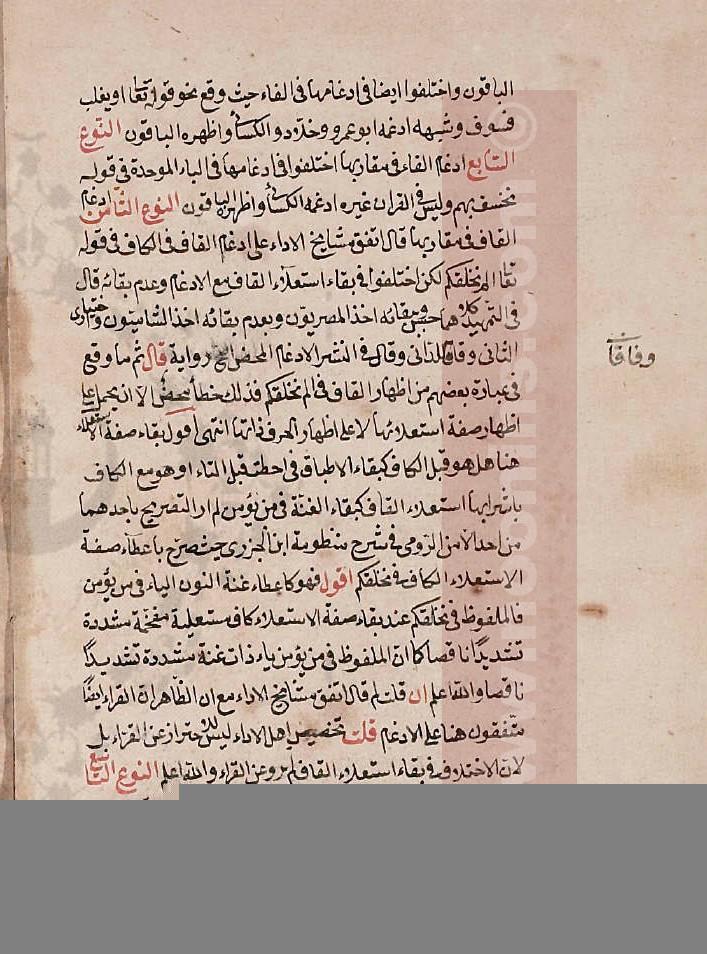 الباقون واختلفوا ايضا في ادغامها في الفاء حيث وقع نحو قوله تعا او يغلب
فسوف وشبهه ادغمه ابو عمرو وخلاد والكسائي واظهره الباقون النوع
السابع ادغام الفاء في مقاربها اختلفوا في ادغامها في الباء الموحدة في قوله
نخسف بهم وليس في القران غيره ادغمه الكسائي واظهره الباقون النوع الثامن ادغام
القاف في مقاربها قال اتفق مشايخ الاداء على ادغام القاف في الكاف في قوله
تعا الم نخلقكم لكن اختلفوا في بقاء استعلاء القاف مع الادغام وعدم بقائه قال
في التمهيد كلاهما حسن وببقائه اخذ المصريون وبعدم بقائه اخذ الشاميون واختياري
الثاني وفاقا للداني وقال في النشر الادغام المحض اصح رواية قال ثم ما وقع
في عبارة بعضهم من اظهار القاف في الم نخلقكم فذلك خطأ محض الا ان يحمل على
اظهار صفة استعلائها لا على اظهار الحرف ذاتها انتهى اقول بقاء صفة الاستعلاء
هنا هل هو قبل الكاف كبقاء الاطباق في احطت قبل التاء او هو مع الكاف
باشرابها استعلاء القاف كبقاء الغنة في من يؤمن لم ار التصريح باحدهما
من احد الا من الرومي في شرح منظومة ابن الجزري حيث صرح باعطاء صفة
الاستعلاء الكاف في نخلقكم اقول فهو كاعطاء غنة النون الياء في من يؤمن
فالملفوظ في نخلقكم عند بقاء صفة الاستعلاء كاف مستعلية مفخمة مشددة
تشديدا ناقصا كما ان الملفوظ في من يؤمن ياء ذات غنة مشددة تشديدا
ناقصا والله اعلم ان قلت لم قال اتفق مشايخ الاداء مع ان الظاهر ان القراء ايضا
متفقون هنا على الادغام قلت تخصيص اهل الاداء ليس للاحتراز عن القراء بل
لان الاختلاف في بقاء استعلاء القاف لم يرو عن القراء والله اعلم النوع التاسع